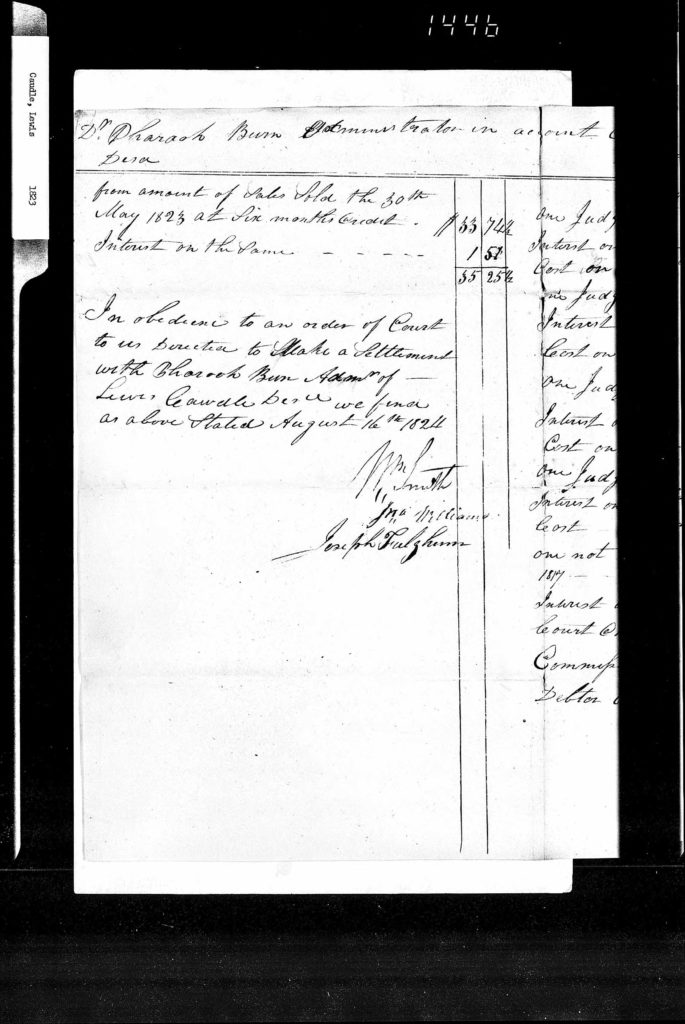 1446
Caudle, Lewis 1823
Dr. Pharaoh Burn Administrator in account
Desd
from amount of Sales Sold the 30th
May 1823 at Six months Credit. $ 33 74½
Interest on the Same - - - - - 1 51
35 25½
In obedience to an order of Court
to us Directed to Make a Settlement
with Pharaoh Burn Admr of —
Lewis Cawdle Desd we find
as above Stated August 16th 1824
Wm Smith
Jno Williams
Joseph Fulghum
one Judg
Interest on
Cost on
one Judg
Interest
Cost on
one Jud
Interest
Cost on
one Judg
Interest on
Cost
one not
1817 —
Interest
Court
Commiss
Debtor